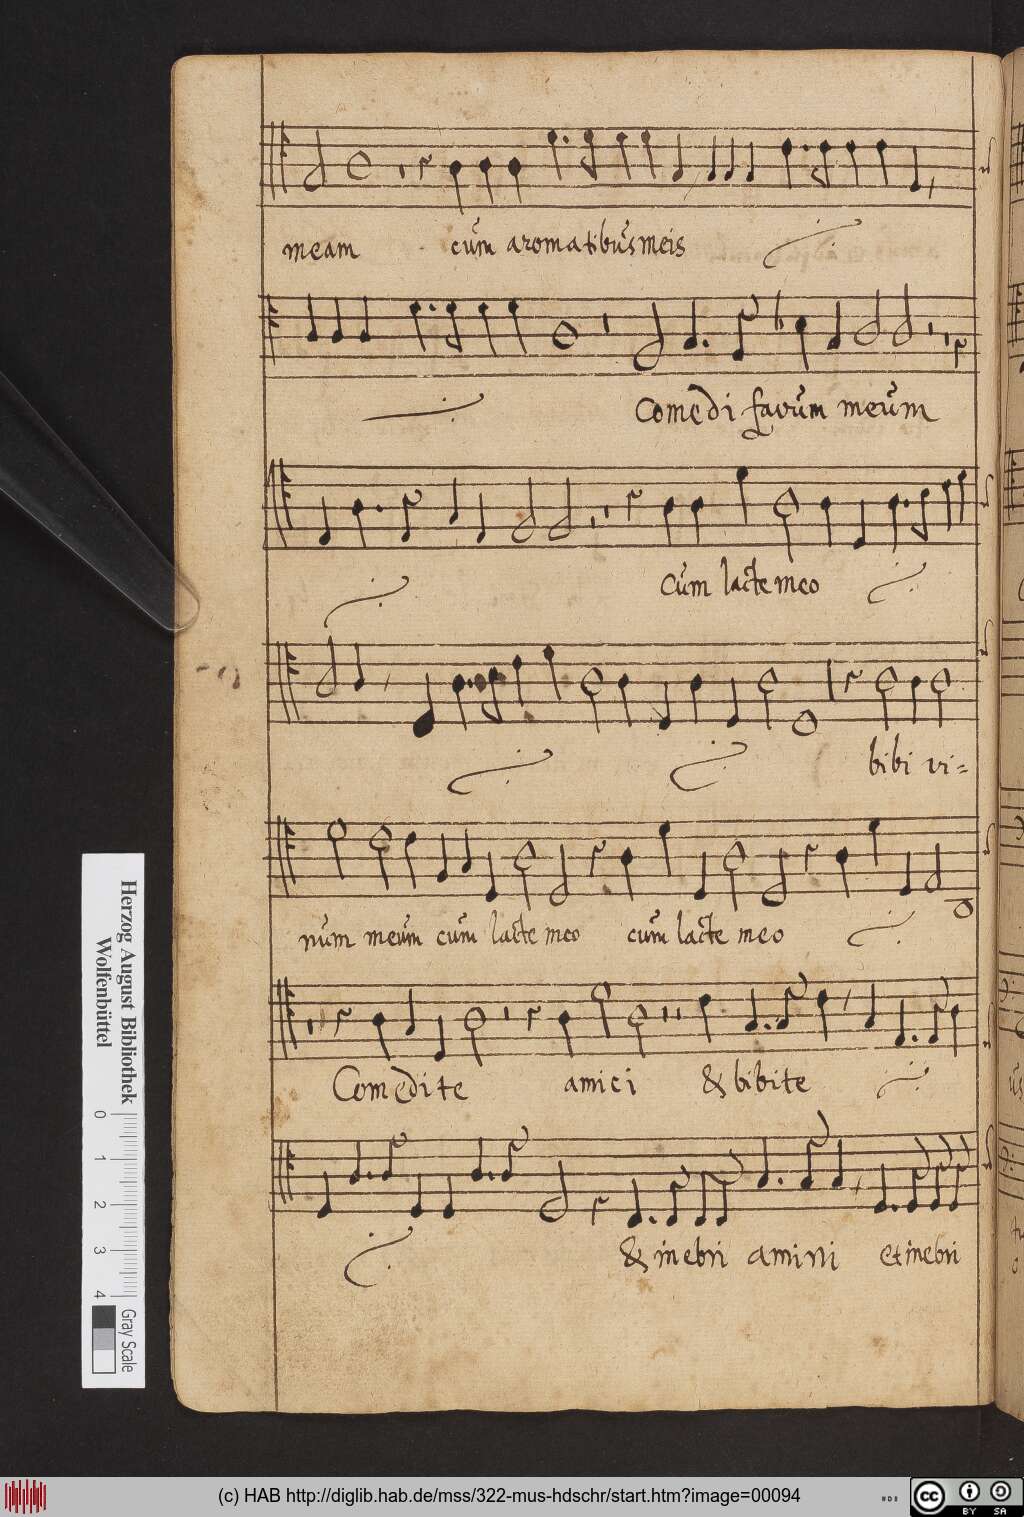 meam cum aromatibus meis
Comedi favum meum
Cum lacte meo
bibi vi=
num meum cum lacte meo cum lacte meo
Comedite amici & bibite
& inebri amini et inebri
Herzog August Bibliothek
Wolfenbüttel
0 1 2 3 4
Gray Scale
(c) HAB http://diglib.hab.de/mss/322-mus-hdschr/start.htm?image=00094
cc
BY SA